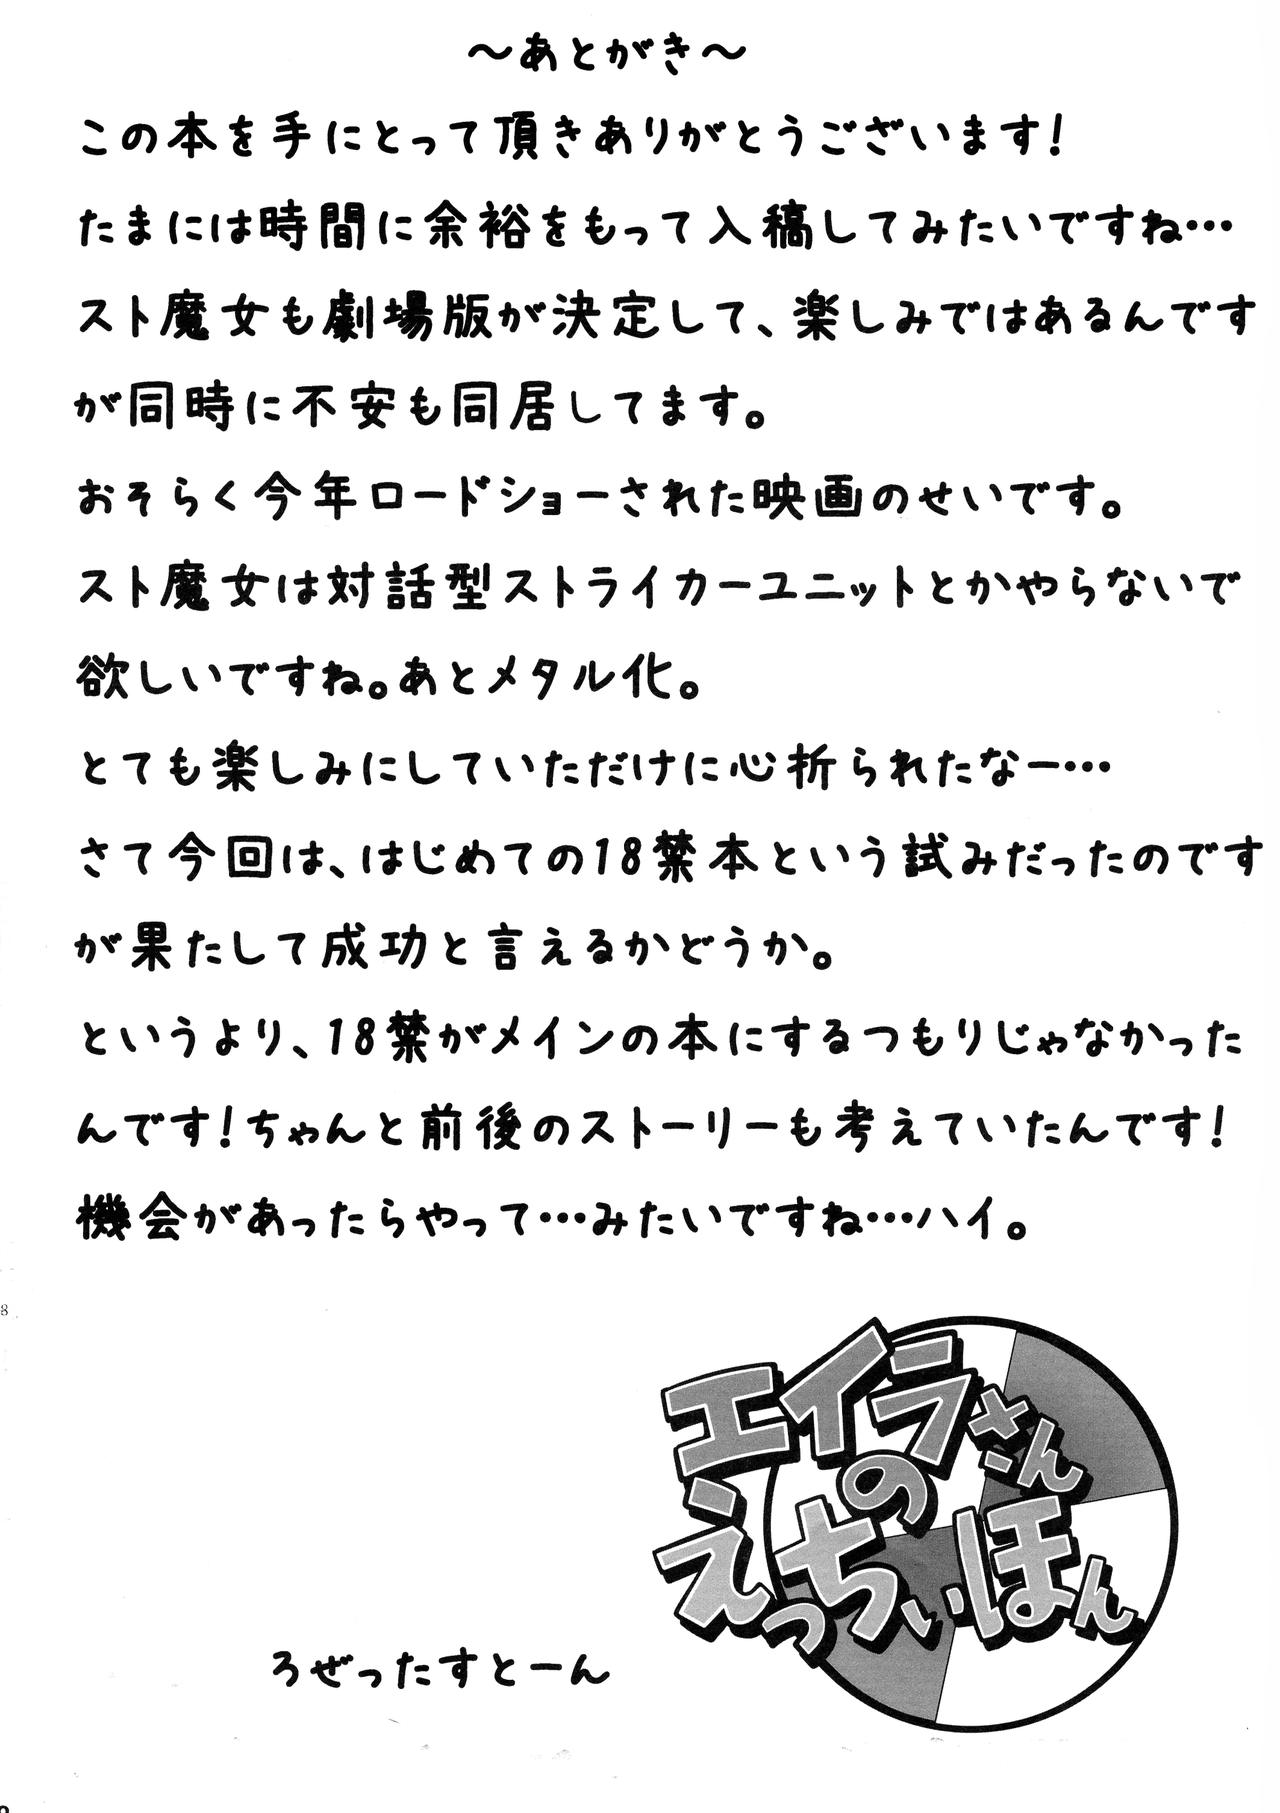 ～あとがき～
この本を手にとって頂きありがとうございます!
たまには時間に余裕をもって入稿してみたいですね…
スト魔女も劇場版が決定して、楽しみではあるんです
が同時に不安も同居してます。
おそらく今年ロードショーされた映画のせいです。
スト魔女は対話型ストライカーユニットとかやらないで
欲しいですね。あとメタル化。
とても楽しみにしていただけに心折られたなー…
さて今回は、はじめての18禁本という試みだったのです
が果たして成功と言えるかどうか。
というより、18禁がメインの本にするつもりじゃなかった
んです!ちゃんと前後のストーリーも考えていたんです!
機会があったらやって…みたいですね…ハイ。
8
エイラさん
の
えっちぃほん
ろぜったすとーん